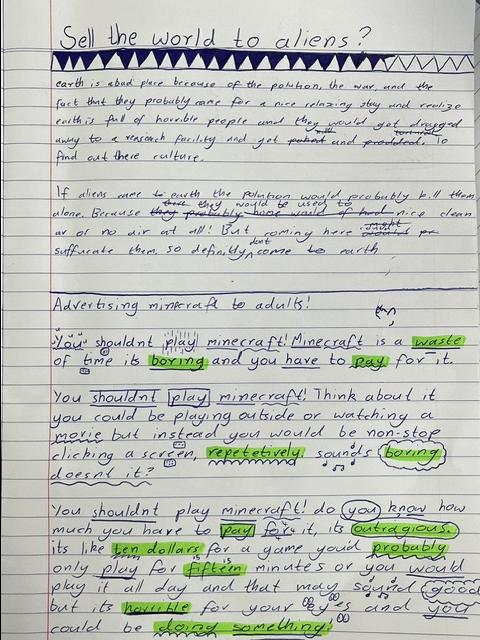 Sell the world to aliens?
earth is abad place because of the polution, the war, and the
fact that they probably came for a nice relaxing stay and realize
earth is full of horrible people and they would get dragged
away to a reaserch facility and get and To
find out there culture.
If aliens came to earth the polution would probably kill them
alone. Because they would be used to nice clean
air or no air at all! But coming here might
suffucate them. so definitly dont come to earth
Advertising minecraft to adults!
You shouldnt play minecraft! Minecraft is a waste
of time its boring and you have to pay for it.
You shouldnt play minecraft! Think about it
you could be playing outside or watching a
movie but instead you would be non-stop
clicking a screen, repetetively. sounds boring
doesnt it?
You shouldnt play minecraft! do you know how
much you have to pay for it, its outragious.
its like ten dollars for a game you'd probably
only play for fifteen minutes or you would
play it all day and that may sound good
but its horrible for your eyes and you
could be doing something!